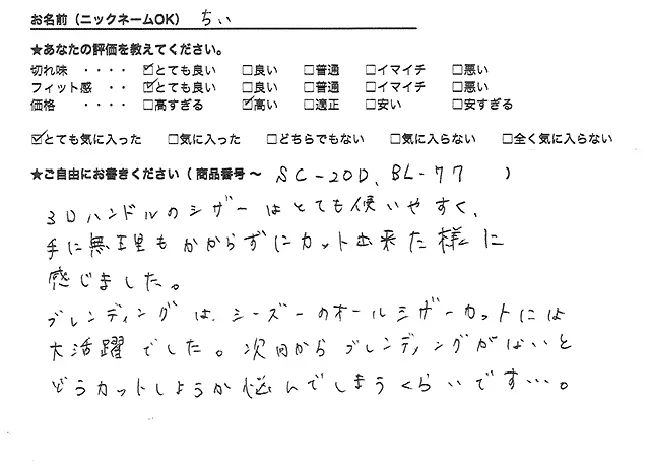 お名前（ニックネームOK） ちぃ
★あなたの評価を教えてください。
切れ味 ・・・・ ☑とても良い □良い □普通 □イマイチ □悪い
フィット感 ・・ ☑とても良い □良い □普通 □イマイチ □悪い
価格 ・・・・ □高すぎる ☑高い □適正 □安い □安すぎる
☑とても気に入った □気に入った □どちらでもない □気に入らない □全く気に入らない
★ご自由にお書きください（商品番号～ SC-20D、BL-77 ）
3Dハンドルのシザーはとても使いやすく、
手に無理もかからずにカット出来た様に
感じました。
ブレンディングは、シーズーのオールシザーカットには
大活躍でした。次回からブレンディングがないと
どうカットしようか悩んでしまうくらいです…。